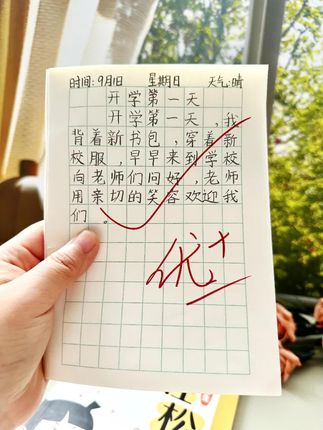 时间:9月1日 星期日 天气:晴
开学第一天
开学第一天,我
背着新书包,穿着新
校服,早早来到学校
向老师们问好,老师
用亲切的笑容欢迎我
们。
优+